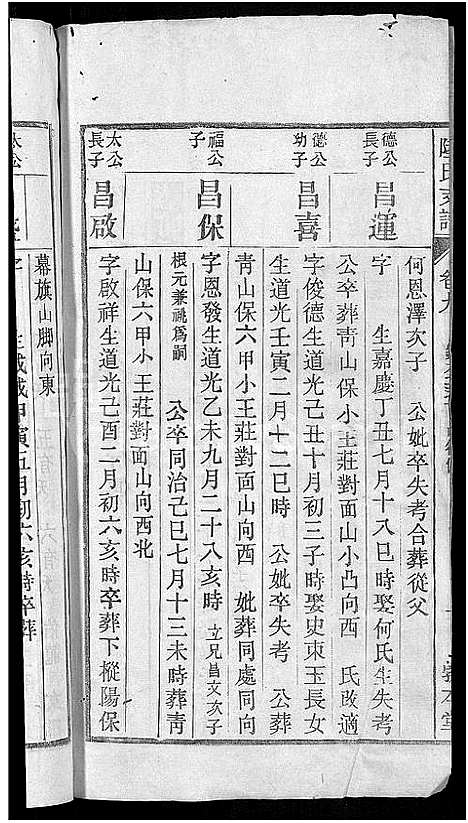 何恩澤次子　公妣卒失考合葬從父
德公長子
昌運
字　生嘉慶丁丑七月十八巳時娶何氏生失考
公卒葬靑山保小王莊對面山小凸向西　氏改適
德公幼子
昌喜
字俊德生道光己丑十月初三子時娶史東玉長女
生道光壬寅二月十二巳時　公妣卒失考　公葬
靑山保六甲小王莊對面山向西　妣葬同處同向
福公子
昌保
字恩發生道光乙未九月二十八亥時　立兄昌文次子
根元兼祧爲嗣　公卒同治己巳七月十三未時葬靑
山保六甲小王莊對面山向西北
太公長子
昌啟
字啟祥生道光己酉二月初六亥時卒葬下樅陽保
幕旗山脚向東
太公
字　生咸
甲寅五月初六亥時卒葬